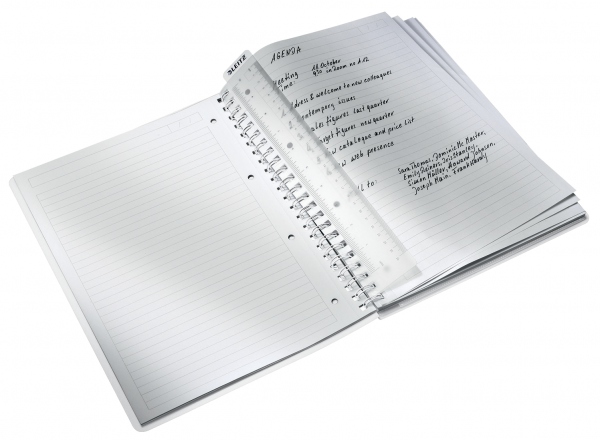 LEITZ
AGENDA
eeting 18. October
ime: in Room no 4.12
dress & welcome to new colleagues
ontemporary issues
ales figures last quarter
arget figures new quarter
w catalogue and price list
w web presence
to: Sara Thomas, Dominic Mc Master,
Emily Stainers, Iris Stanley,
Simon Müller, Howard Johnson,
Joseph Main, Frank Hardy